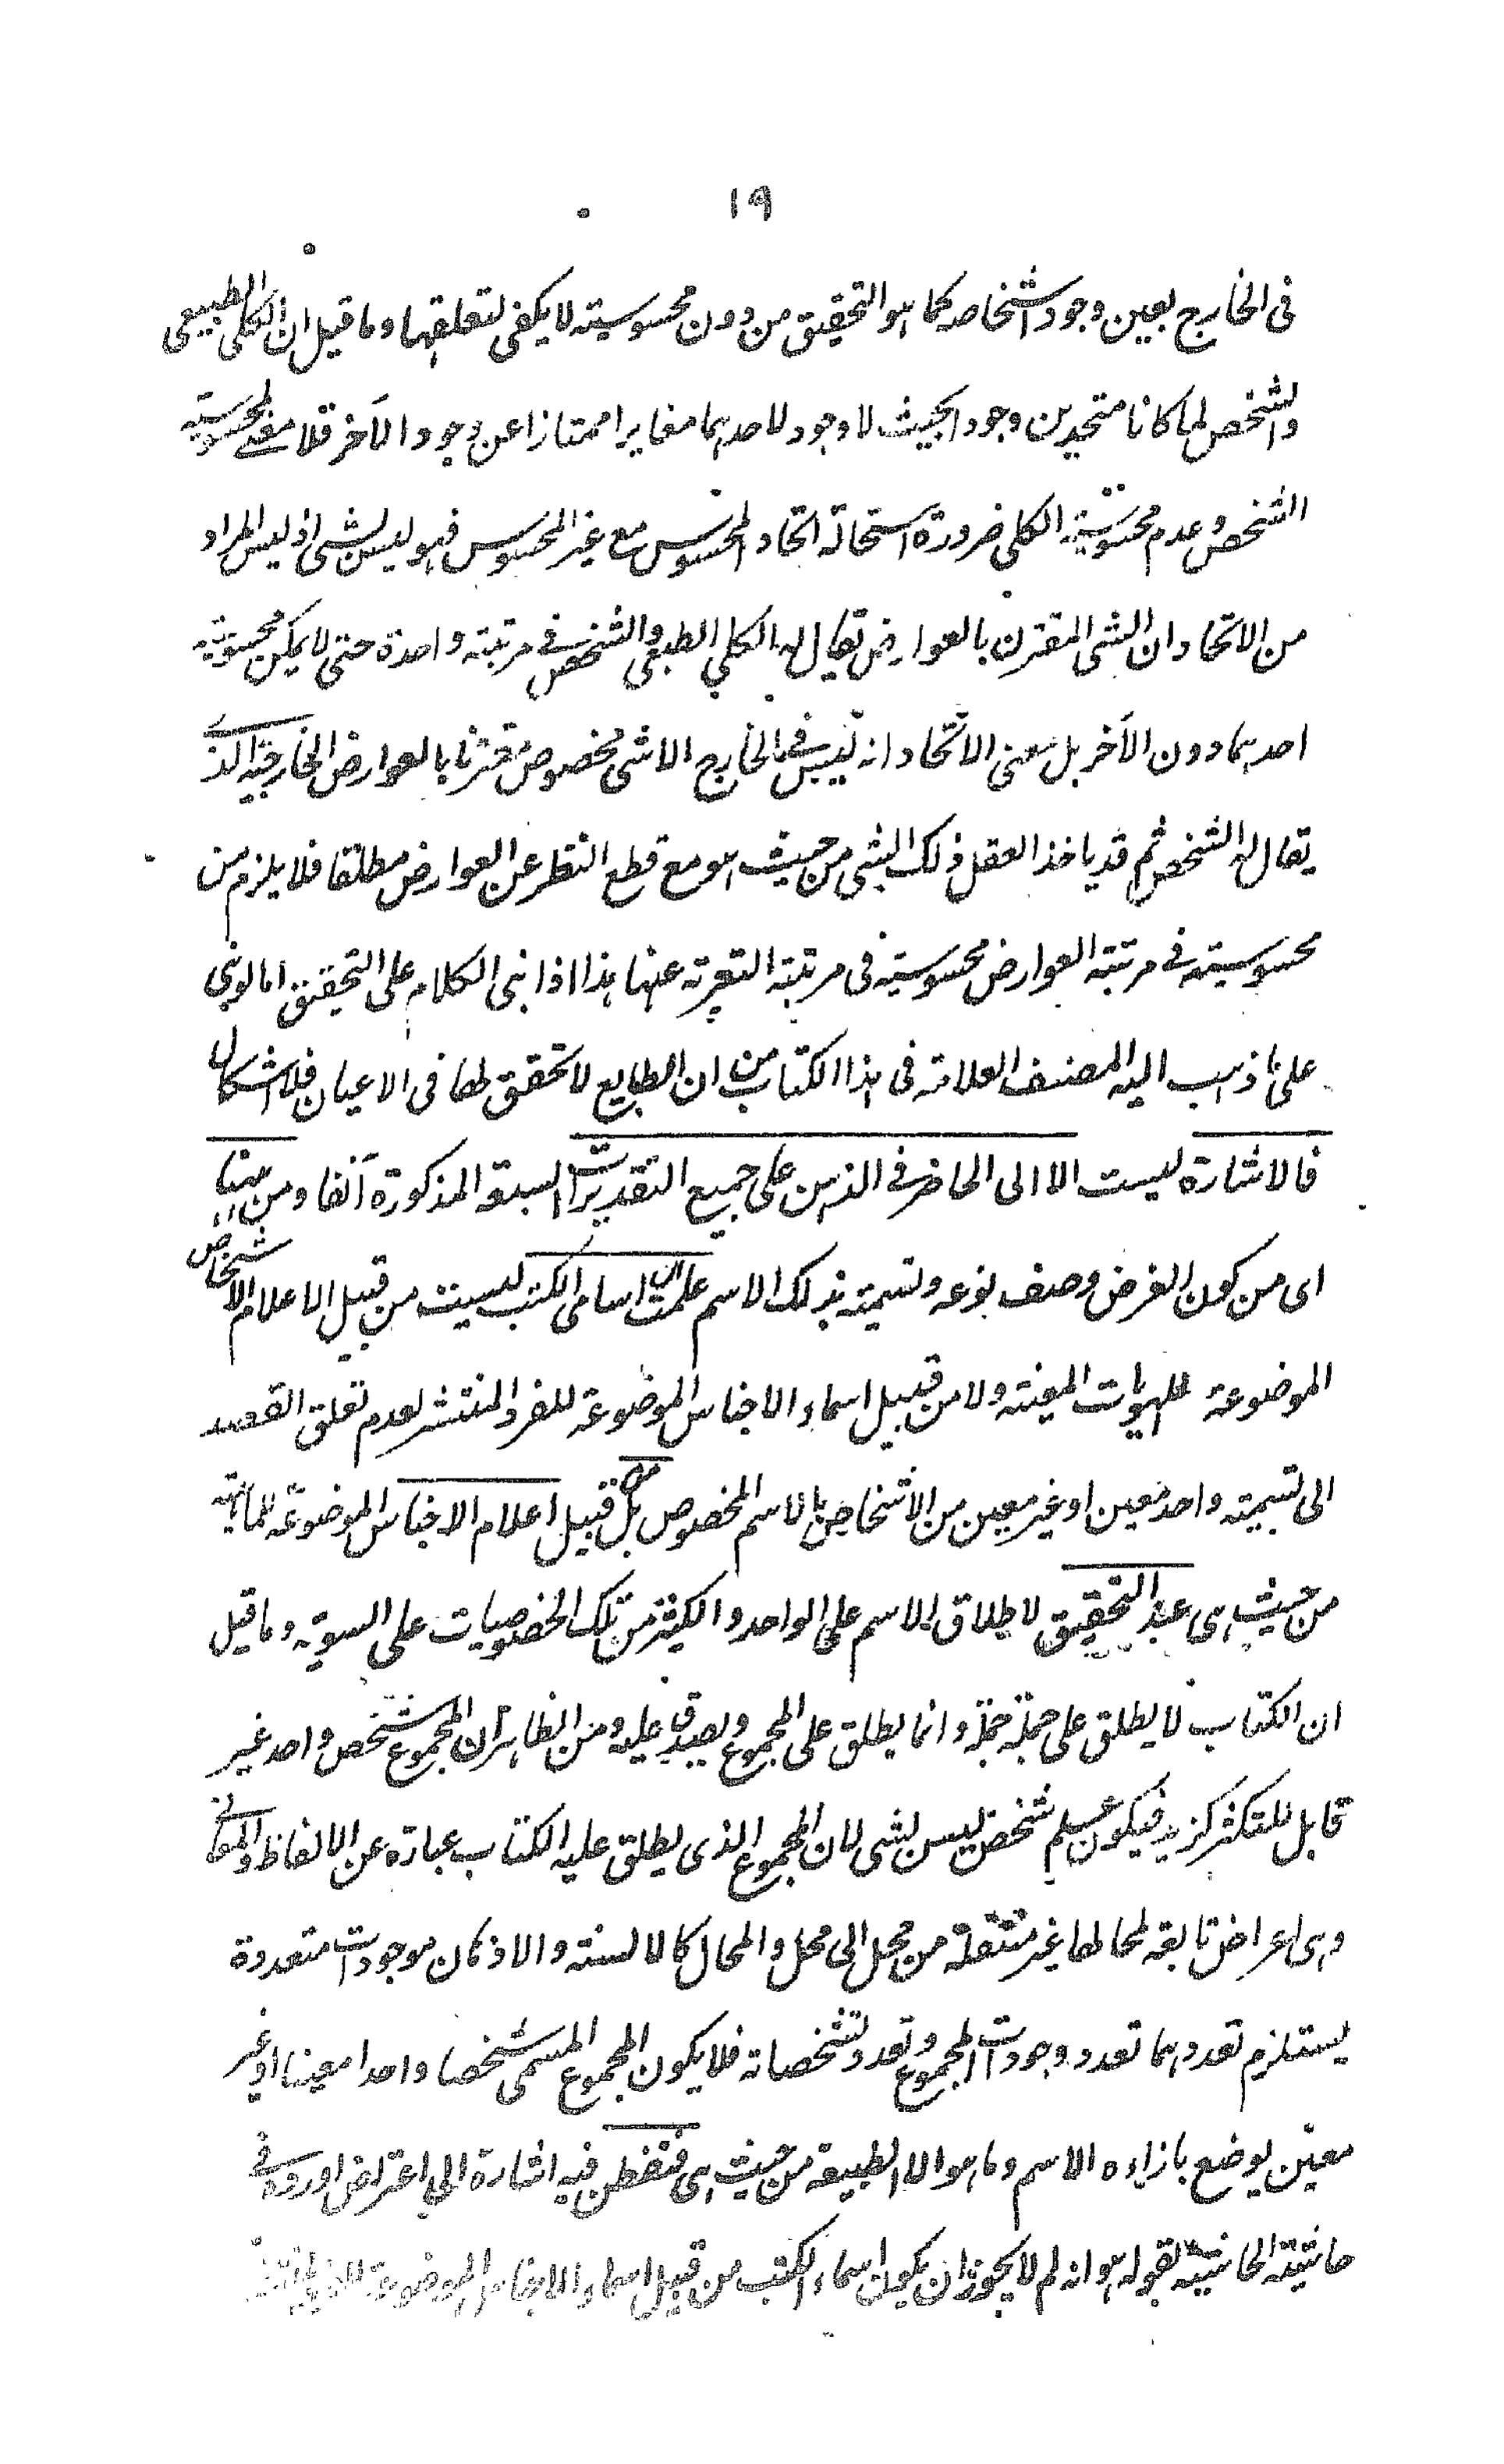 ١٩
فى الخارج بعين وجود اشخاصه كما هو التحقيق من دون محسوسيته لا يكفى لتعلقها وما قيل ان الكلى الطبيعى
والشخص لما كانا متحدين وجودا بحيث لا وجود لاحدهما مغايرا ممتازا عن وجود الآخر فلا معنے لمحسوسية
الشخص وعدم محسوسية الكلى ضرورة استحالة اتحاد المحسوس مع غير المحسوس فهو ليس بشى اذ ليس المراد
من الاتحاد ان الشى المقترن بالعوارض يقال له الكلي الطبعى والشخص فے مرتبته واحدة حتى لا يمكن محسوسية
احدهما دون الآخر بل معنى الاتحاد انه ليس فے الخارج الا شى مخصوص مقترنا بالعوارض الخارجية الذے
يقال له الشخص ثم قد ياخذ العقل ذلك الشى من حيث هو مع قطع النظر عن العوارض مطلقا فلا يلزم من
محسوسيته فے مرتبته العوارض محسوسيته فى مرتبته التعرية عنها هذا اذا بنى الكلام على التحقيق اما لو بنى
على ما ذهب اليه المصنف العلامة فى هذا الكتاب من ان الطبايع لا تحقق لها فى الاعيان فلا اشكال
فالاشارة ليست الا الى الحاضر فے الذهن على جميع التقديرات السبعة المذكورة آنفا ومن ههنا
اى من كون الغرض وصف نوعه وتسميته بذلك الاسم علمت ان اسامى الكتب ليست من قبيل الاعلام الاشخاص
الموضوعة للهويات المعينة ولا من قبيل اسماء الاجناس الموضوعة للفرد المنتشر لعدم تعلق القصد
الى تسمية واحد معين او غير معين من الاشخاص بالاسم المخصوص بل من قبيل اعلام الاجناس الموضوعة للماهية
من حيث هى عند التحقيق لاطلاق الاسم على الواحد والكثير من تلك الخصوصيات على السوية وما قيل
ان الكتاب لا يطلق على جملة جملة وانما يطلق على المجموع ويصدق عليه ومن الظاهر ان المجموع شخص واحد غير
قابل للتكثر كزيد فيكون علم شخص ليس بشى لان المجموع الذى يطلق عليه الكتاب عبارة عن الالفاظ والمعانے
وهى اعراض تابعة لمحالها غير منتقلة من محل الى محل والمحال كالالسنة والاذهان موجودات متعددة
يستلزم تعددهما تعدد وجودات المجموع وتعدد تشخصاته فلا يكون المجموع المسمى شخصا واحدا معينا او غير
معين يوضع بازاءه الاسم وما هو الا الطبيعة من حيث هى فتفطن فيه اشارة الى اعتراض اورده فے
حاشية الحاشية بقوله هو انه لم لا يجوز ان يكون اسماء الكتب من قبيل اسماء الاجناس الموضوعة